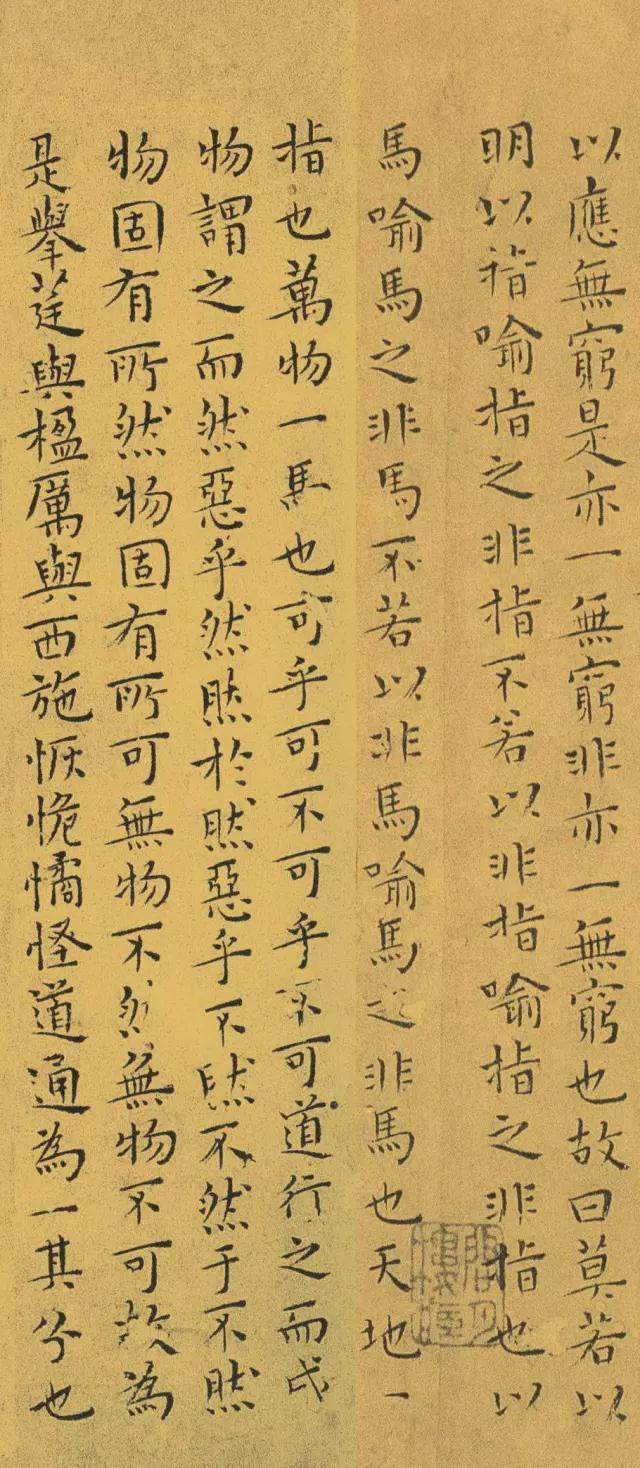 以應無窮是亦一無窮非亦一無窮也故曰莫若以
明以指喻指之非指不若以非指喻指之非指也以
馬喻馬之非馬不若以非馬喻馬之非馬也天地一
指也萬物一馬也可乎可不可乎不可道行之而成
物謂之而然惡乎然然於然惡乎不然不然于不然
物固有所然物固有所可無物不然無物不可故為
是舉莛與楹厲與西施恢恑憰怪道通為一其分也